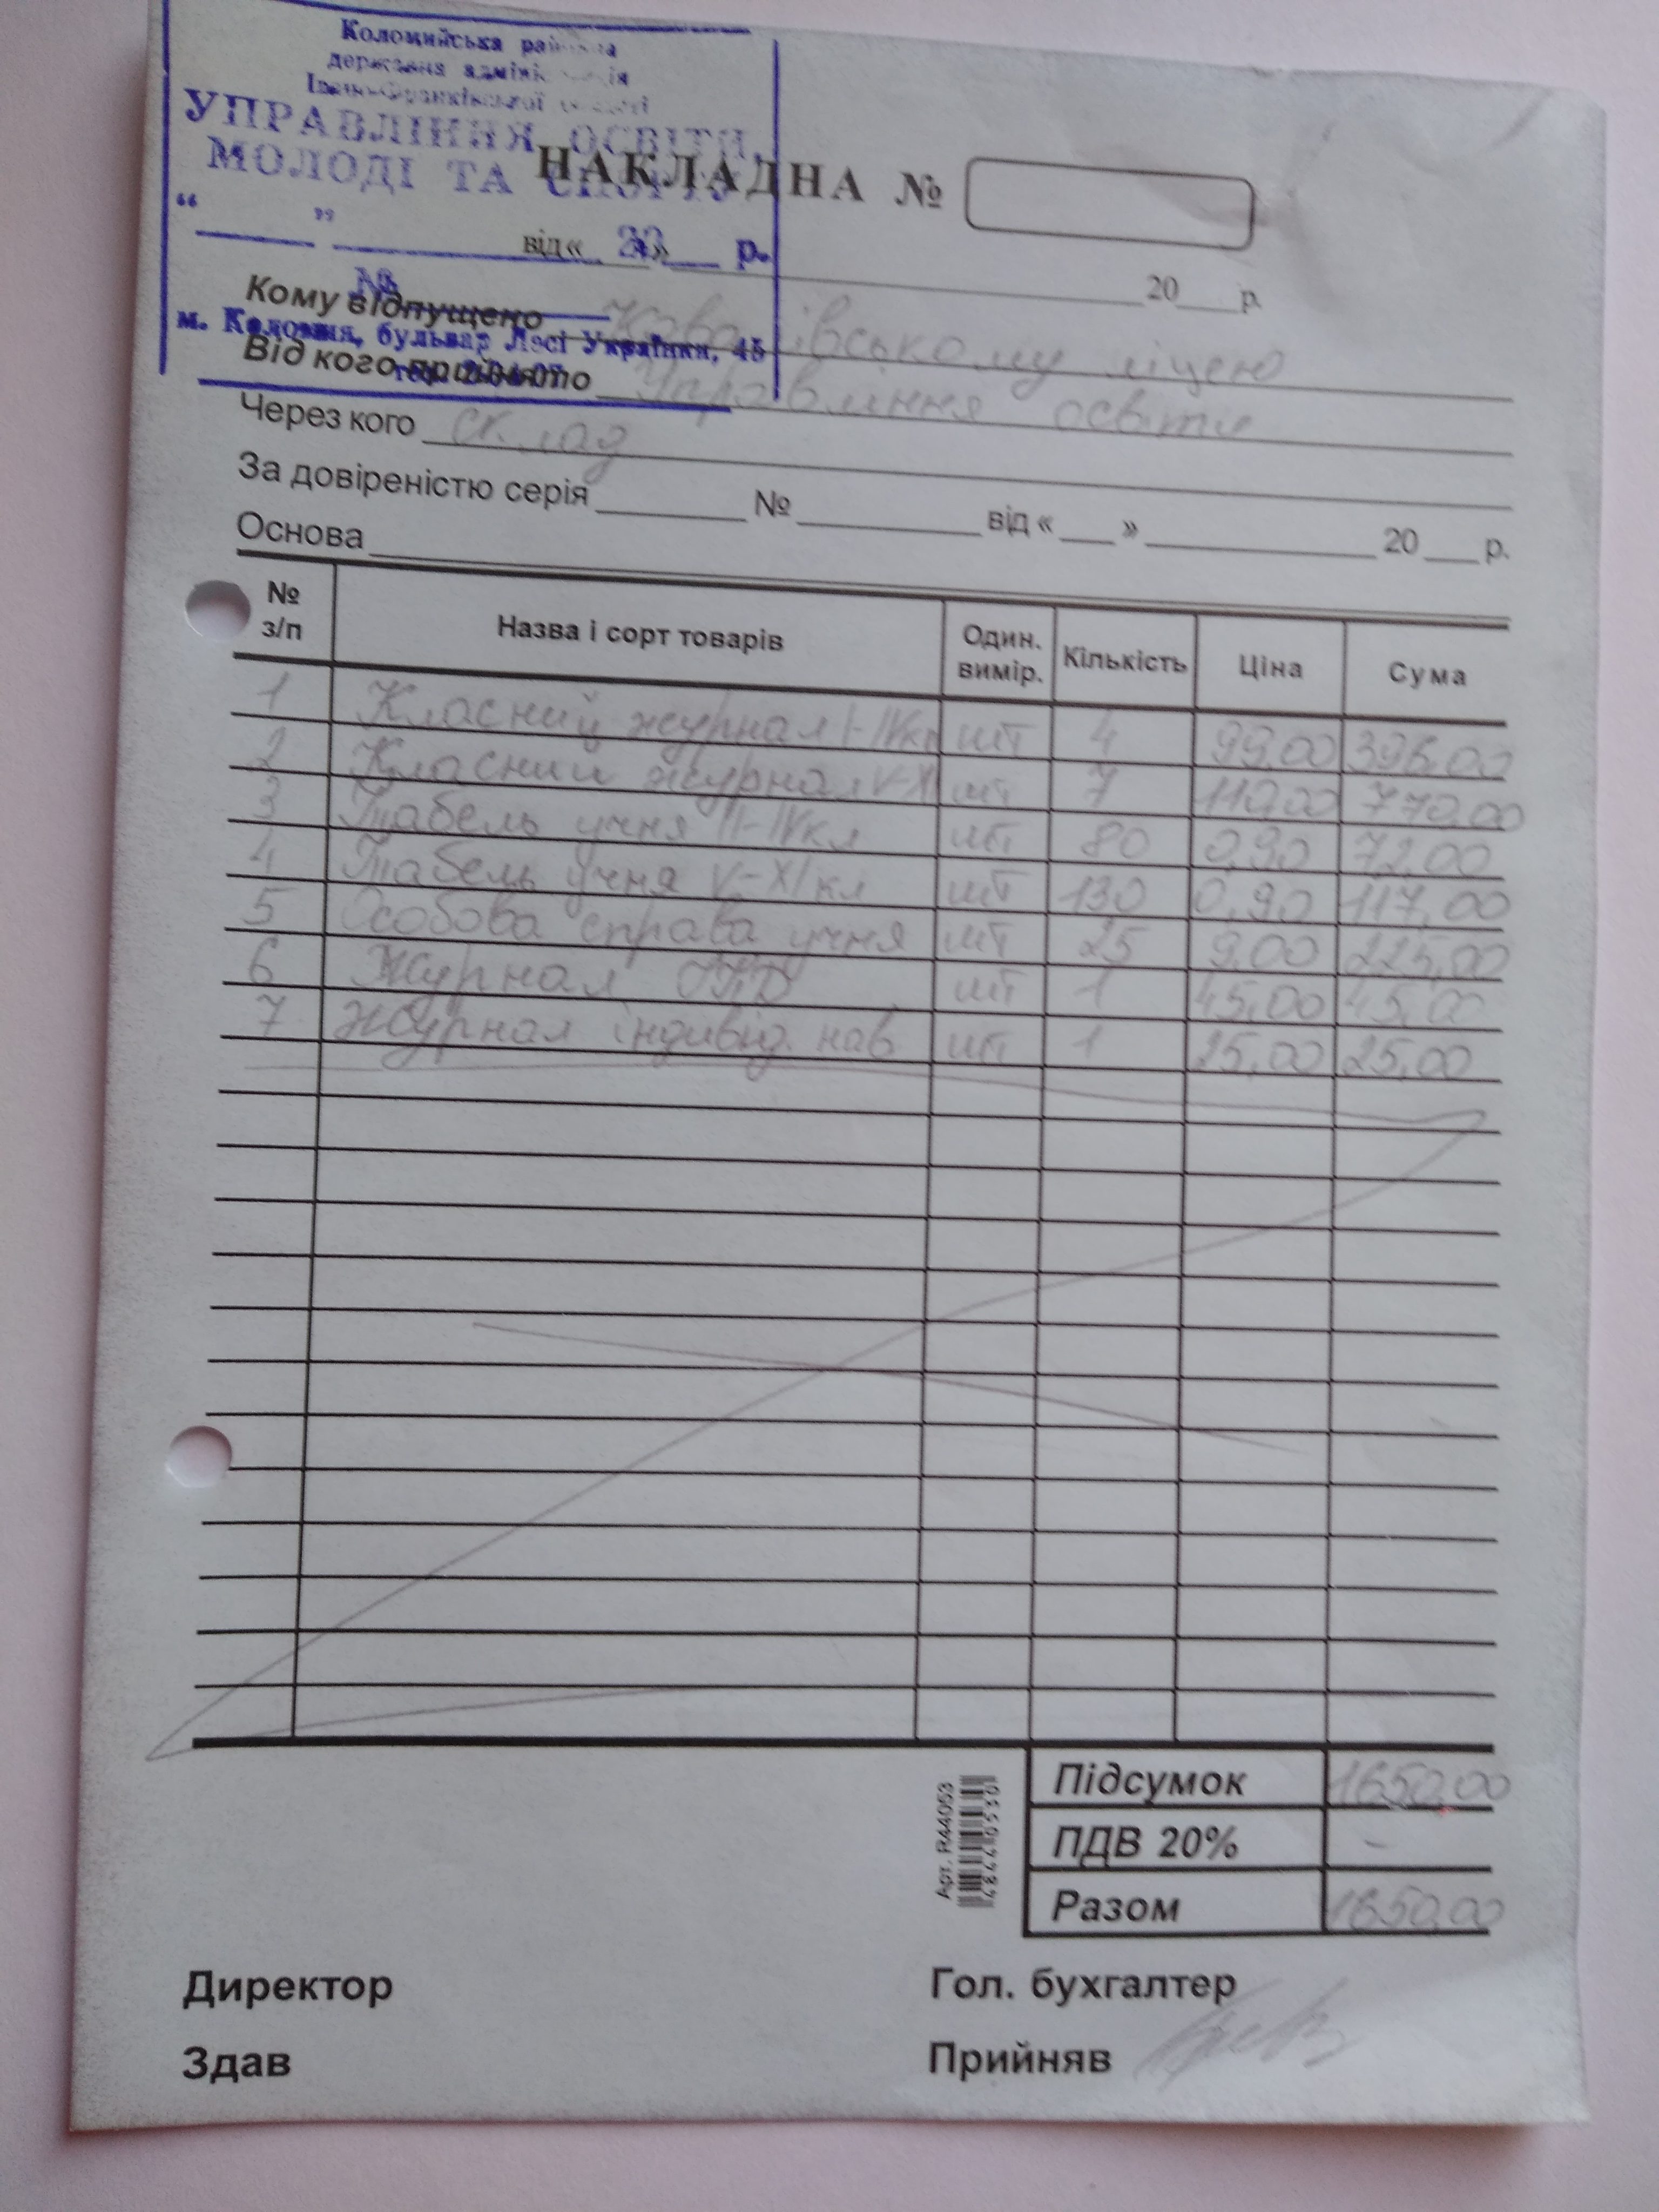 Коломийська районна
державна адміністрація
Івано-Франківської області
УПРАВЛІННЯ ОСВІТИ,
МОЛОДІ ТА СПОРТУ
“ ” 20 р.
№
м. Коломия, бульвар Лесі Українки, 45
НАКЛАДНА №
від « » 20 р.
Кому відпущено ліцею
Від кого прийнято Управління освіти
Через кого склад
За довіреністю серія № від « » 20 р.
Основа
№ з/п Назва і сорт товарів Один. вимір. Кількість Ціна Сума
1 Класний журнал I-IVкл шт 4 99,00 396,00
2 Класний журнал V-XI шт 7 110,00 770,00
3 Табель учня II-IVкл шт 80 0,90 72,00
4 Табель учня V-XI кл шт 130 0,90 117,00
5 Особова справа учня шт 25 9,00 225,00
6 Журнал ГПД шт 1 45,00 45,00
7 Журнал індивід. нав шт 1 25,00 25,00
Підсумок 1650,00
ПДВ 20% -
Разом 1650,00
Арт. R44053
Директор Гол. бухгалтер
Здав Прийняв